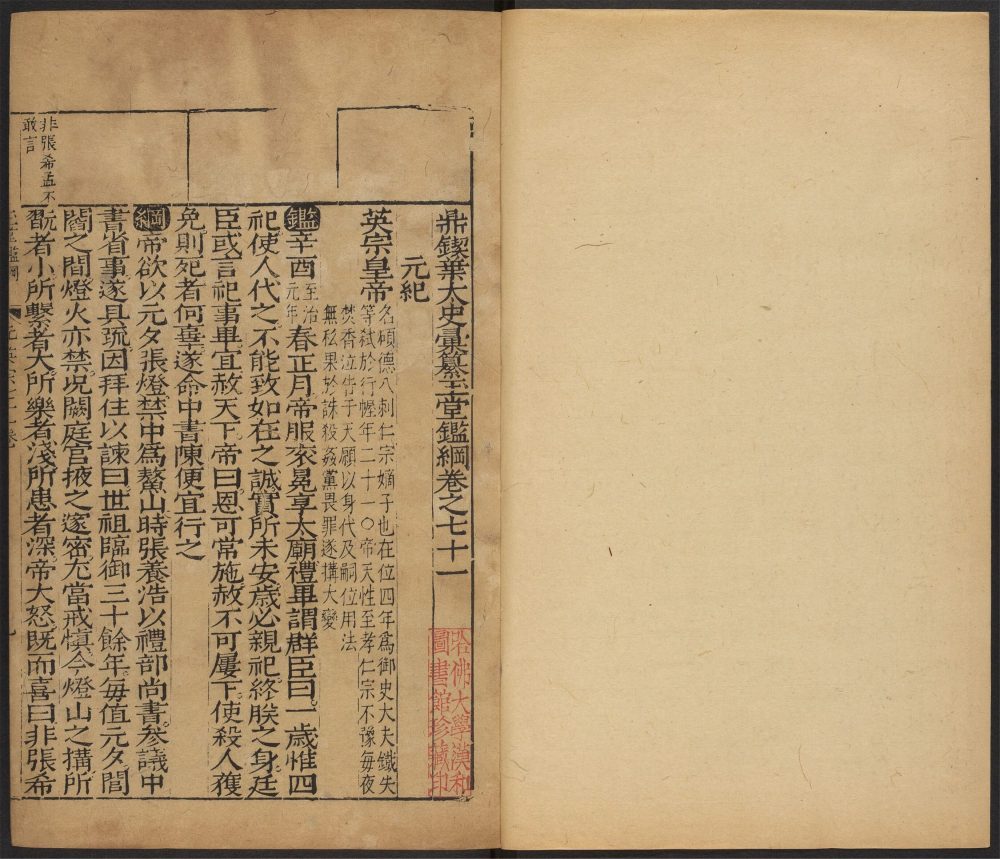 鼎鍥葉太史彙纂玉堂鑑綱卷之七十一
元紀
英宗皇帝
名碩德八剌仁宗嫡子也在位四年爲御史大夫鐵失
等弒於行幄年二十一○帝天性至孝仁宗不豫每夜
焚香泣告于天願以身代及嗣位用法
無私果於誅殺奸黨畏罪遂搆大變
鑑辛酉至治元年春正月帝服衮冕享太廟禮畢謂群臣曰一歲惟四
祀使人代之不能致如在之誠實所未安歲必親祀終朕之身廷
臣或言祀事畢宜赦天下帝曰恩可常施赦不可屢下使殺人獲
免則死者何辜遂命中書陳便宜行之
綱帝欲以元夕張燈禁中爲鰲山時張養浩以禮部尚書參議中
書省事遂具疏因拜住以諫曰世祖臨御三十餘年每值元夕閭
閻之間燈火亦禁况闕庭宮掖之邃密尤當戒慎今燈山之搆所
翫者小所繫者大所樂者淺所患者深帝大怒既而喜曰非張希
非張希孟不
敢言
哈佛大學漢和
圖書館珍藏印